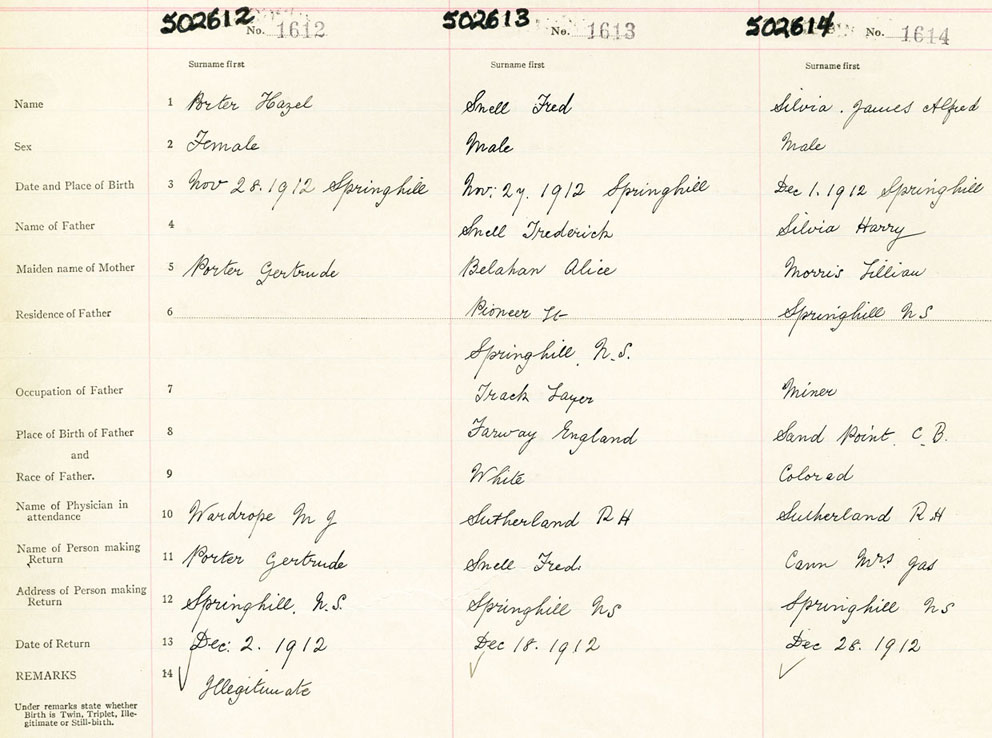 502612 No. 1612 502613 No. 1613 502614 No. 1614
Surname first Surname first Surname first
Name 1 Porter Hazel Snell Fred Silvia . James Alfred
Sex 2 Female Male Male
Date and Place of Birth 3 Nov 28. 1912 Springhill Nov: 27. 1912 Springhill Dec 1. 1912 Springhill
Name of Father 4 Snell Frederick Silvia Harry
Maiden name of Mother 5 Porter Gertrude Belahan Alice Morris Lillian
Residence of Father 6 Pioneer St Springhill NS
Springhill, N.S.
Occupation of Father 7 Track Layer Miner
Place of Birth of Father 8 Farway England Sand Point. C.B.
and
Race of Father. 9 White Colorad
Name of Physician in
attendance 10 Wardrope M J Sutherland R H Sutherland R H
Name of Person making
Return 11 Porter Gertrude Snell Fred. Cann Mrs Jas
Address of Person making
Return 12 Springhill, N.S. Springhill NS Springhill NS
Date of Return 13 Dec: 2. 1912 Dec 18. 1912 Dec 28. 1912
REMARKS 14 Illegitimate
Under remarks state whether
Birth is Twin, Triplet, Ille-
gitimate or Still-birth.